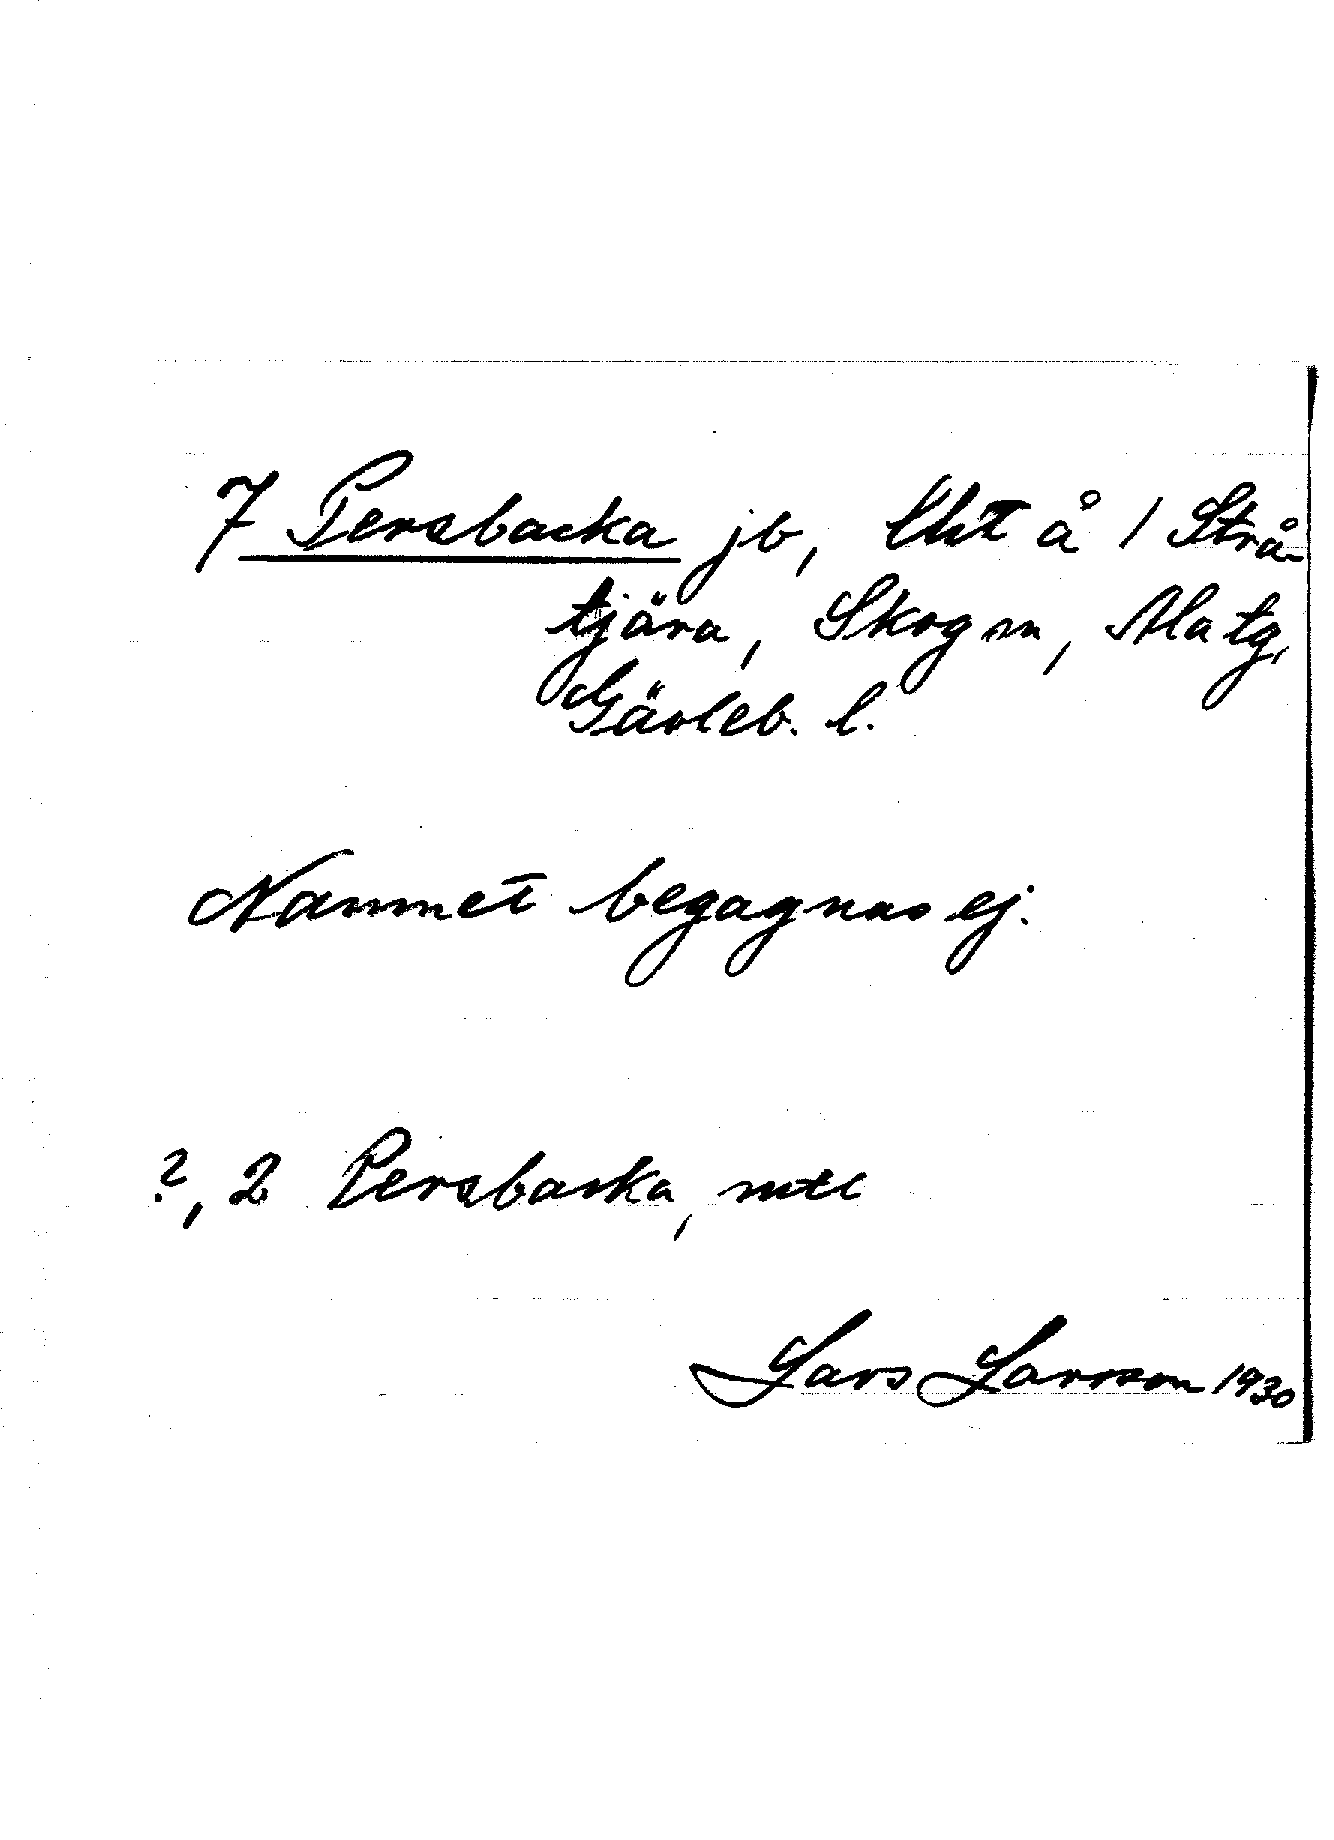 7 Persbacka jb, lht å 1 Strå-
tjära, Skog sn, Ala tg,
Gävleb. l.
Namnet begagnas ej.
?, 2 Persbacka, mtl
Lars Larsson 1930